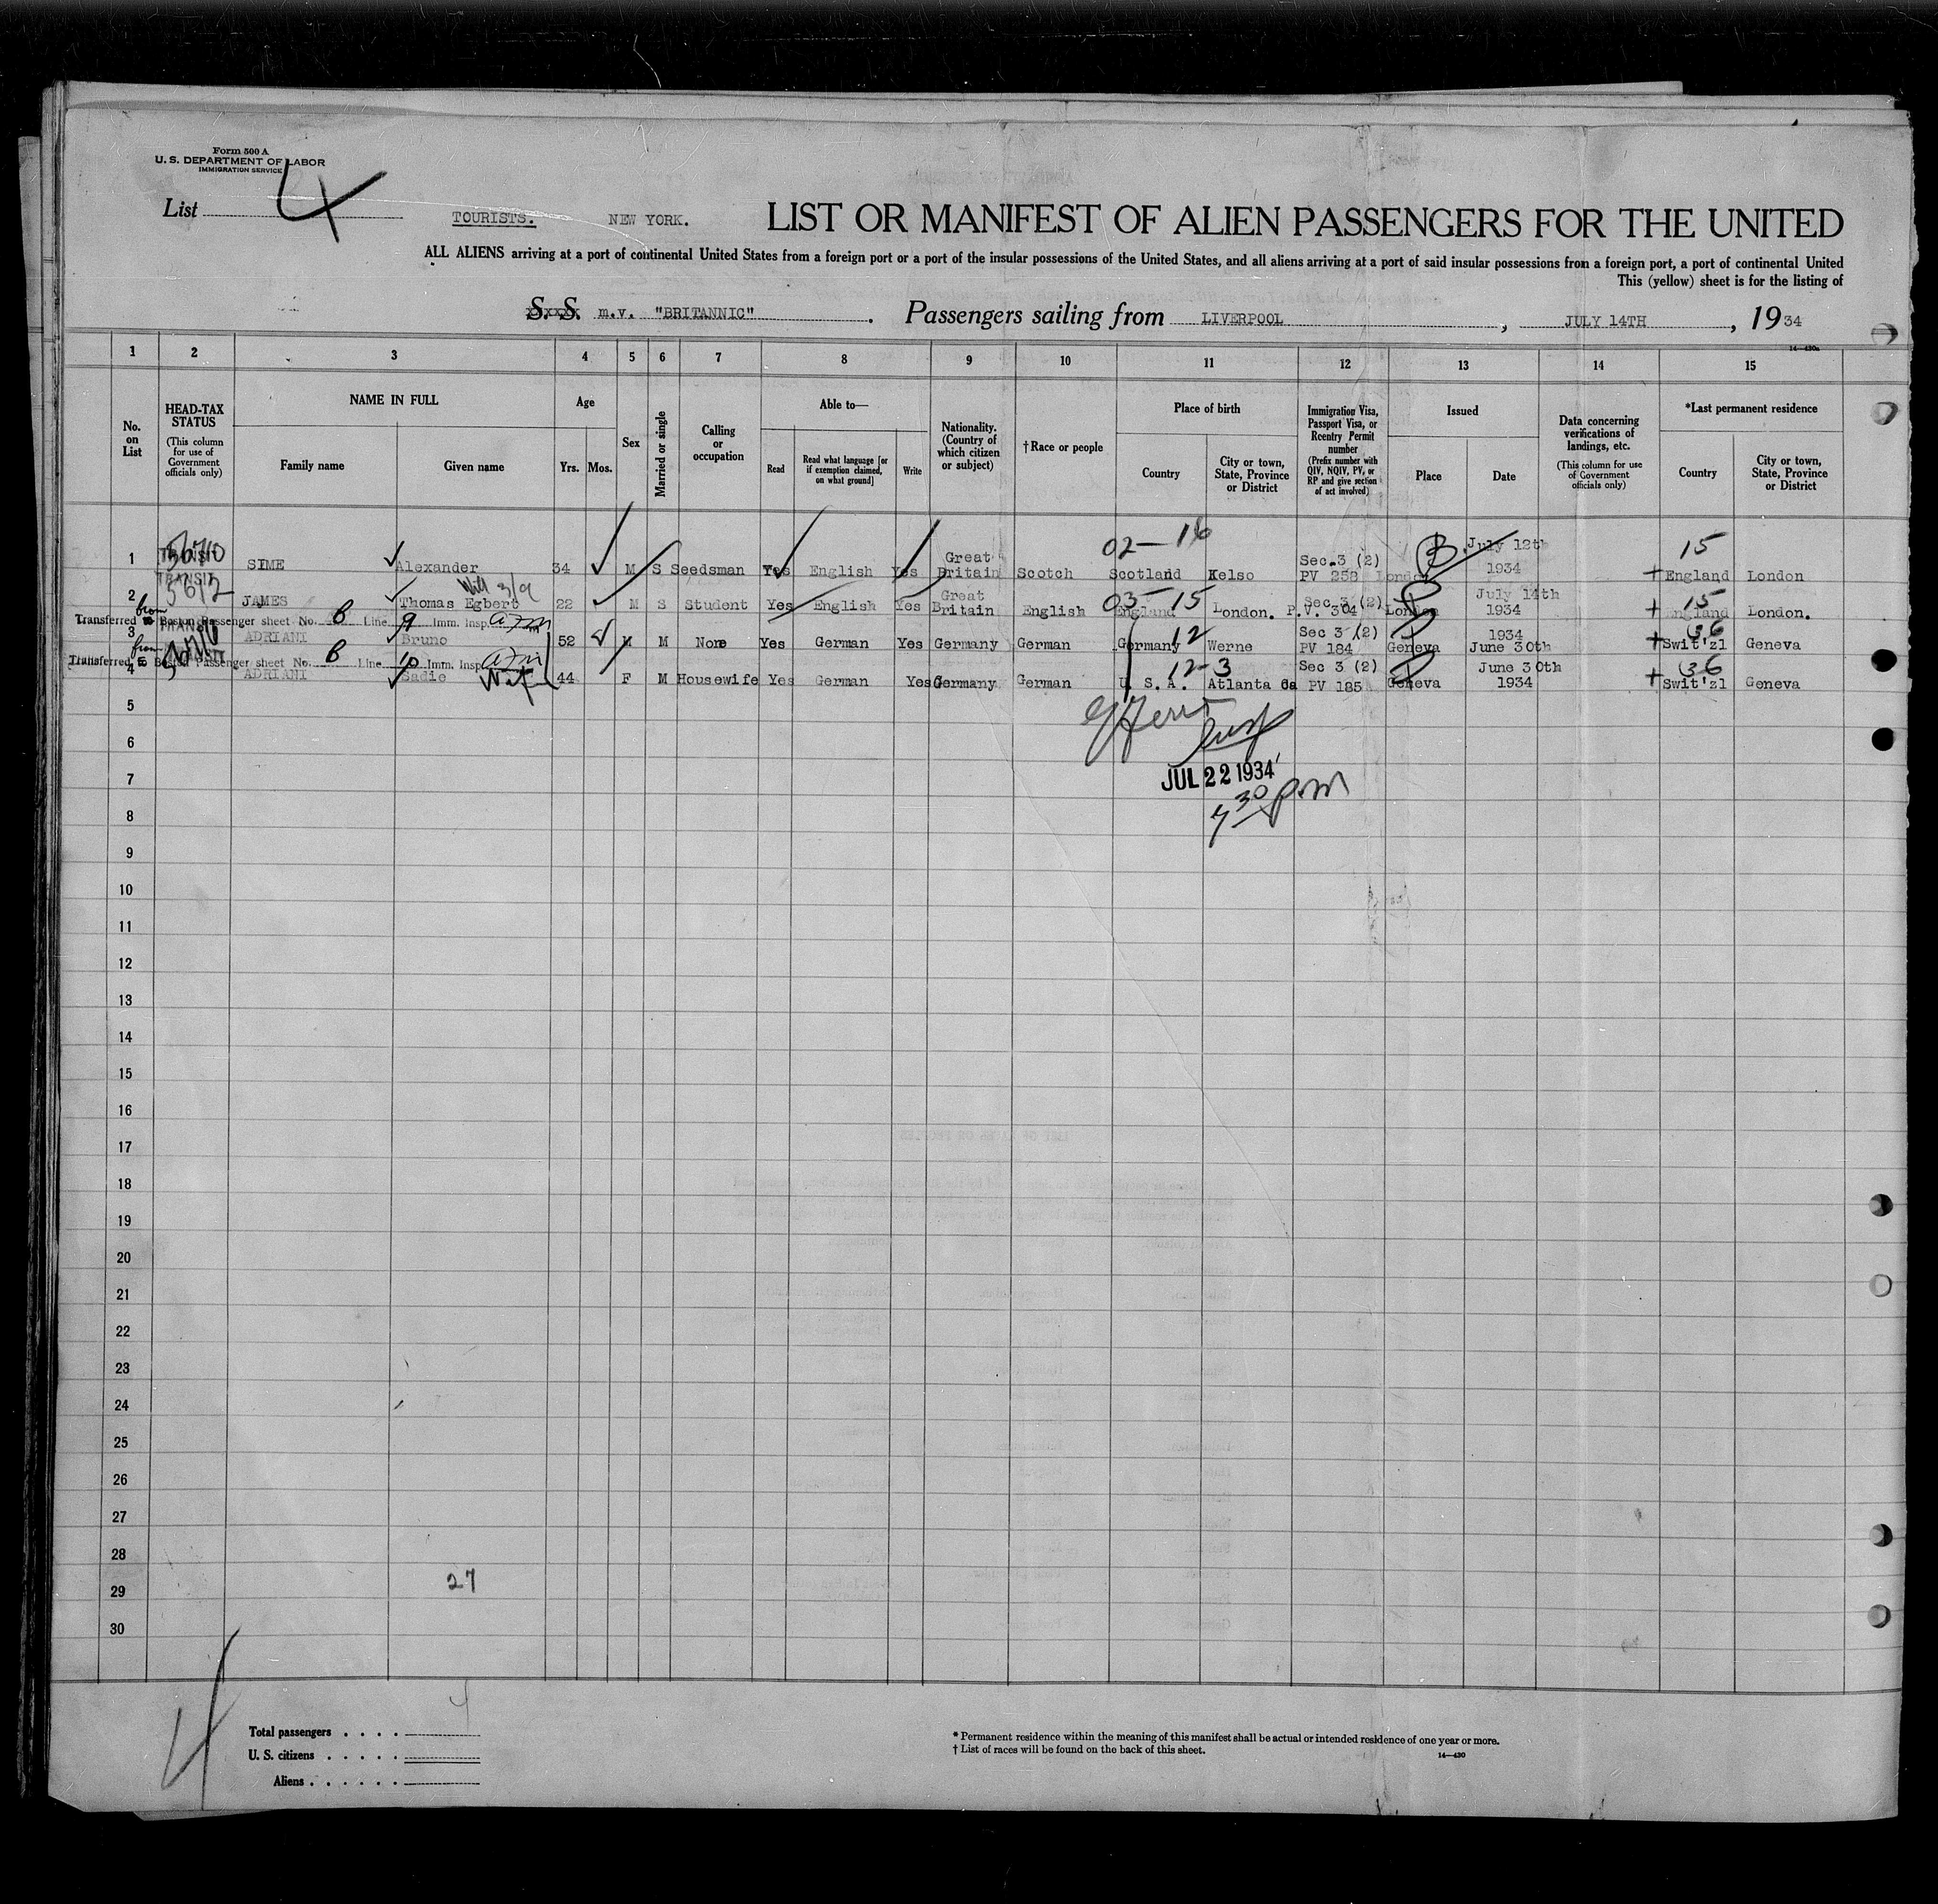 Form 500 A
U. S. DEPARTMENT OF LABOR
IMMIGRATION SERVICE
List 4
TOURISTS. NEW YORK. LIST OR MANIFEST OF ALIEN PASSENGERS FOR THE UNITED
ALL ALIENS arriving at a port of continental United States from a foreign port or a port of the insular possessions of the United States, and all aliens arriving at a port of said insular possessions from a foreign port, a port of continental United
This (yellow) sheet is for the listing of
S. S. m.v. "BRITANNIC" . Passengers sailing from LIVERPOOL , JULY 14TH , 1934
14—430a
1 2 3 4 5 6 7 8 9 10 11 12 13 14 15
No. on List
HEAD-TAX STATUS
(This column for use of Government officials only)
NAME IN FULL
Family name Given name
Age
Yrs. Mos.
Sex
Married or single
Calling or occupation
Able to—
Read Read what language [or if exemption claimed, on what ground] Write
Nationality. (Country of which citizen or subject)
†Race or people
Place of birth
Country City or town, State, Province or District
Immigration Visa, Passport Visa, or Reentry Permit number
(Prefix number with QIV, NQIV, PV, or RP and give section of act involved)
Issued
Place Date
Data concerning verifications of landings, etc.
(This column for use of Government officials only)
*Last permanent residence
Country City or town, State, Province or District
02—16 15
1 TRANSIT SIME Alexander 34 M S Seedsman Yes English Yes Great Britain Scotch Scotland Kelso Sec.3 (2) PV 258 London July 12th 1934 England London
3/9
03—15 15
2 TRANSIT 5612 JAMES Thomas Egbert 22 M S Student Yes English Yes Great Britain English England London. Sec 3 (2) P.V. 304 London July 14th 1934 England London.
Transferred from Boston Passenger sheet No. B Line 9 Imm. Insp.
12 36
3 TRANSIT ADRIANI Bruno 52 M M None Yes German Yes Germany German Germany Werne Sec 3 (2) PV 184 Geneva 1934 June 30th Swit'zl Geneva
Transferred from Boston Passenger sheet No. B Line 10 Imm. Insp.
12-3 36
4 ADRIANI Sadie Wife 44 F M Housewife Yes German Yes Germany German U. S. A. Atlanta Ga Sec 3 (2) PV 185 Geneva June 30th 1934 Swit'zl Geneva
5
6
7
JUL 22 1934
7 30 p.m
8
9
10
11
12
13
14
15
16
17
18
19
20
21
22
23
24
25
26
27
28
27
29
30
4
Total passengers . . . . 4
U. S. citizens . . . . .
Aliens . . . . . .
* Permanent residence within the meaning of this manifest shall be actual or intended residence of one year or more.
† List of races will be found on the back of this sheet.
14—430